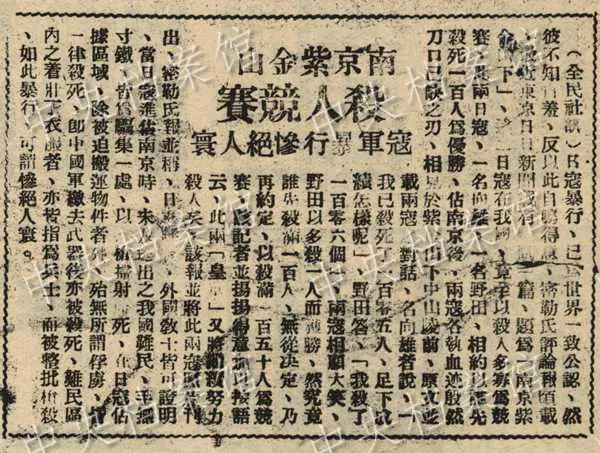 南京紫金山
殺人競賽
寇軍暴行慘絕人寰
(全民社訊)日寇暴行,已世界一致公認,然
彼不知羞,反以此自鳴得意,密勒氏評論報頃載
最近東京日日新聞載有一篇,題爲南京紫
金山下」,日寇在我國,竟以殺人多寡爲競
賽,此兩日寇,一名向雄一名野田,相約以先
殺死一百人爲優勝,佔南京後,兩寇各執血迹殷然
刀口已缺之刃,相見於紫金山下中山陵前,原文並
載兩寇對話,名向雄者說,「
我已殺死了一百零五人,足下成
績怎樣呢」,野田答,「我殺了
一百零六個」,兩寇相顧大笑,
野田以多殺一人而勝,然究竟
誰先殺滿一百人,無從決定,乃
再約定,以殺滿一百五十人爲競
賽,該記者並揚揚得意加以按語
云,此兩「皇軍」又將努力
殺人矣,該報並將此兩寇照片刊
出,密勒氏報並稱,日寇暴行,外國教士皆可證明
,當日寇進佔南京時,未及逃出之我國難民,手無
寸鐵,皆爲驅集一處,以機槍掃射而死,在日寇佔
據區域,除被迫搬運物件者外,殆無所謂俘虜,
一律殺死,卽中國軍繳去武器後亦被殺死,難民區
內之着壯丁衣服者,亦被指爲兵士,而被整批槍殺
,如此暴行,可謂慘絕人寰。
中央档案馆